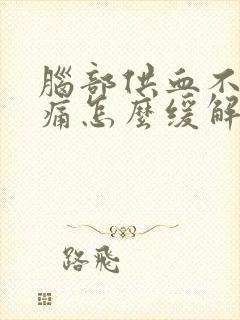 腦部供血不
痛怎麼緩解
路飛